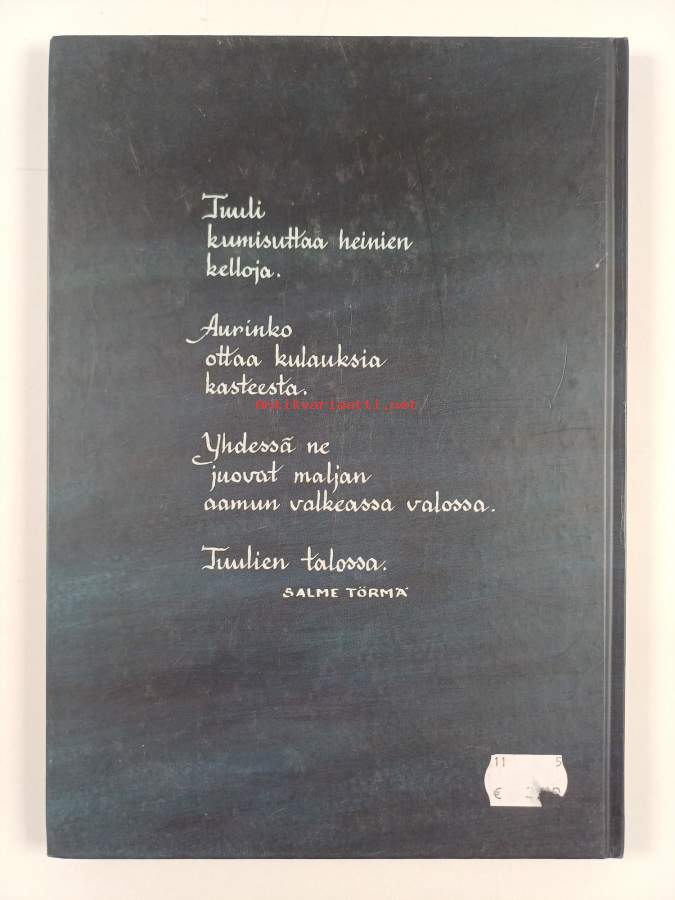 Tuuli
kumisuttaa heinien
kelloja.
Aurinko
ottaa kulauksia
kasteesta.
antikvariaatti.net
Yhdessä ne
juovat maljan
aamun valkeassa valossa.
Tuulien talossa.
SALME TÖRMÄ
11 5
€